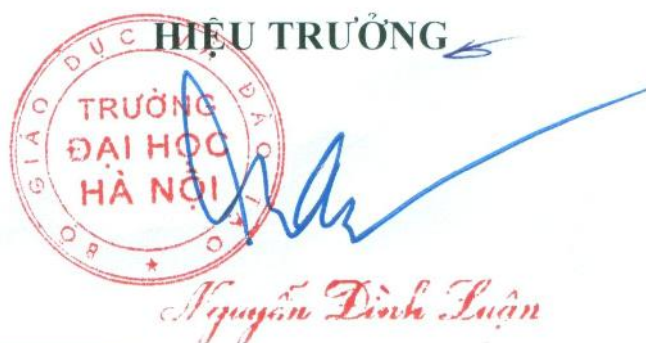 HIỆU TRƯỞNG
BỘ GIÁO DỤC VÀ ĐÀO TẠO
TRƯỜNG
ĐẠI HỌC
HÀ NỘI
Nguyễn Đình Luận